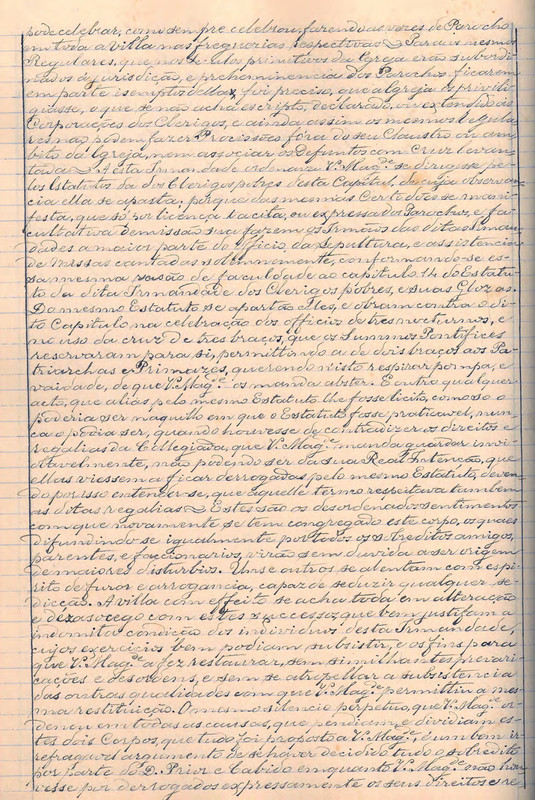 pode celebrar, como sempre celebrou, fazendo as vezes de Parocho
em toda a villa nas freguezias respectivas. Para os mesmos
Regulares, que nos seculos primitivos da Igreja erão subordi-
nados á jurisdicção, e preheminencia dos Parochos, ficarem
em parte isemptos della, foi preciso, que a Igreja os privile-
giasse, o que se não acha escripto, declarado, ou extendido ás
Corporações dos Clerigos, e ainda assim os mesmos Regula-
res não podem fazer Procissões fóra do seu Claustro ou am-
bito da Igreja, nem associar os Defuntos com Cruz levan-
tada. A esta Irmandade ordenara V. Mag.e se dirigisse pe-
los Estatutos da dos Clerigos pobres desta Capital, de cuja observan-
cia ella se aparta, porque das mesmas Certidões se mani-
festa, que só por licença tacita, ou expressa dos Parochos, e fa-
cultativa demissão sua fazem os Irmãos das ditas Irman-
dades a maior parte do officio, da sepultura, e assistencia
de Missas cantadas solemnemente, conformando-se es-
sa mesma rasão de faculdade ao capitulo 14 do Estatu-
to da dita Irmandade dos Clerigos pobres, e suas Glozas.
Do mesmo Estatuto se apartão elles, e obram contra o di-
to Capitulo na celebração dos officios de tres nocturnos, e
no uso da cruz de tres braços, que os Summos Pontifices
reservaram para si, permittindo a de dois braços aos Pa-
triarchas e Primazes, querendo nisto respirar pompa, e
vaidade, de que V. Mag.e os manda abster. E outro qualquer
acto, que aliás pelo mesmo Estatuto lhe fosse licito, como só o
poderia ser naquillo em que o Estatuto fosse praticavel, nun-
ca o podia ser, quando houvesse de contradizer os direitos e
regalias da Collegiada, que V. Mag.e manda guardar invi-
olavelmente, não podendo ser da sua Real Intenção, que
ellas viessem a ficar derrogadas pelo mesmo Estatuto, deven-
do por isso entender-se, que aquelle termo respeitava tambem
as ditas regalias. Estes são os desordenados sentimentos
com que novamente se tem congregado este corpo, os quaes
difundindo-se igualmente por todos os sobreditos amigos,
parentes, e faccionarios, virão sem duvida a ser origem
de maiores disturbios. Uns e outros se alentam com espi-
rito de furor e arrogancia, capaz de seduzir qualquer, se-
dicção. A villa com effeito se acha toda em alteração
e dezasocego com estes successos, que bem justificam a
indomita condição dos individuos desta Irmandade,
cujos exercicios bem podiam subsistir, e os fins para
que V. Mag.e a fez restaurar, sem similhantes prevari-
cações e desordens, e sem se atropellar a subsistencia
das outras qualidades com que V. Mag.e permittiu a mes-
ma restituição. O mesmo silencio perpetuo, que V. Mag.e or-
denou em todas as causas, que pendiam e dividiam es-
tes dois Corpos, que tudo foi proposto a V. Mag.e, é um bem ir-
refragavel argumento de se haver decidido tudo o sobredito
por parte do D. Prior e Cabido emquanto V. Mag.e não hou-
vesse por derrogados expressamente os seus direitos e re-